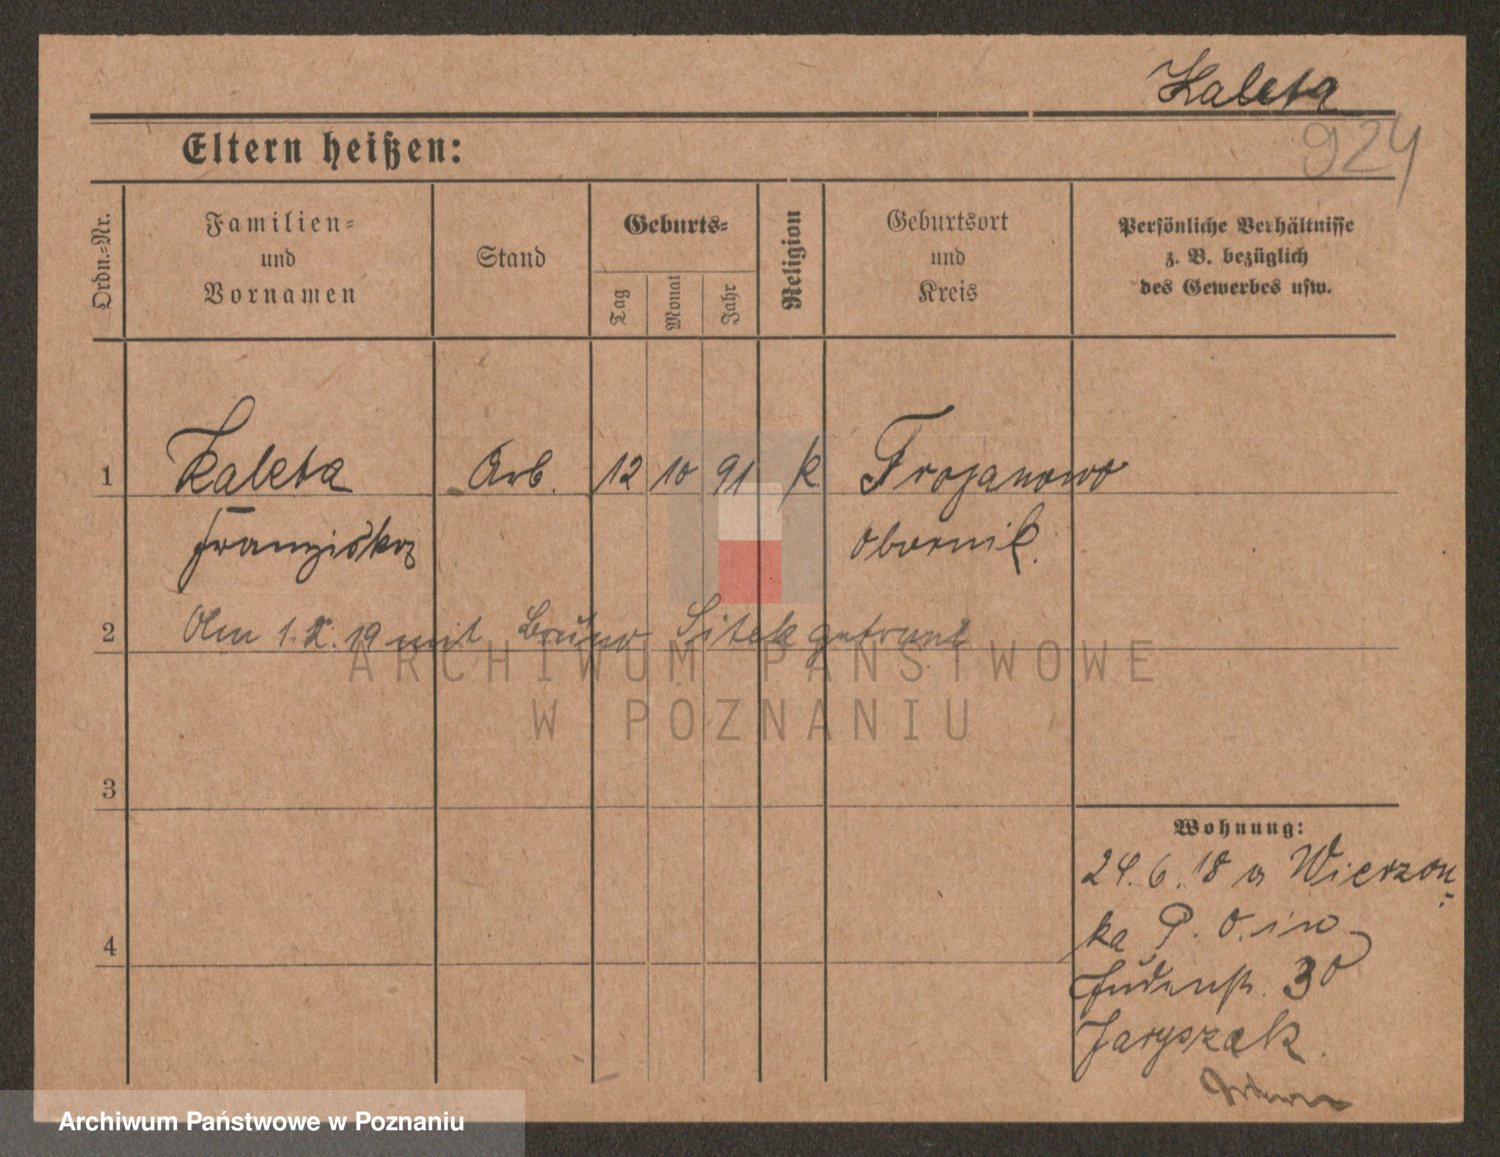 Kaleta
924
Eltern heißen:
Ordn.=Nr.
Familien=
und
Vornamen
Stand
Geburts=
Tag
Monat
Jahr
Religion
Geburtsort
und
Kreis
Persönliche Verhältnisse
z. B. bezüglich
des Gewerbes usw.
1
Kaleta Arb. 12 10 91 k. Troganowo
Franziska Obornik.
2
Am 1. X. 19 mit Bruno Sitek getraut
ARCHIWUM PAŃSTWOWE
W POZNANIU
3
Wohnung:
24.6.18 a Wierzon-
4
ka P. O. in
Judenstr. 30
Jaryszak.
Archiwum Państwowe w Poznaniu